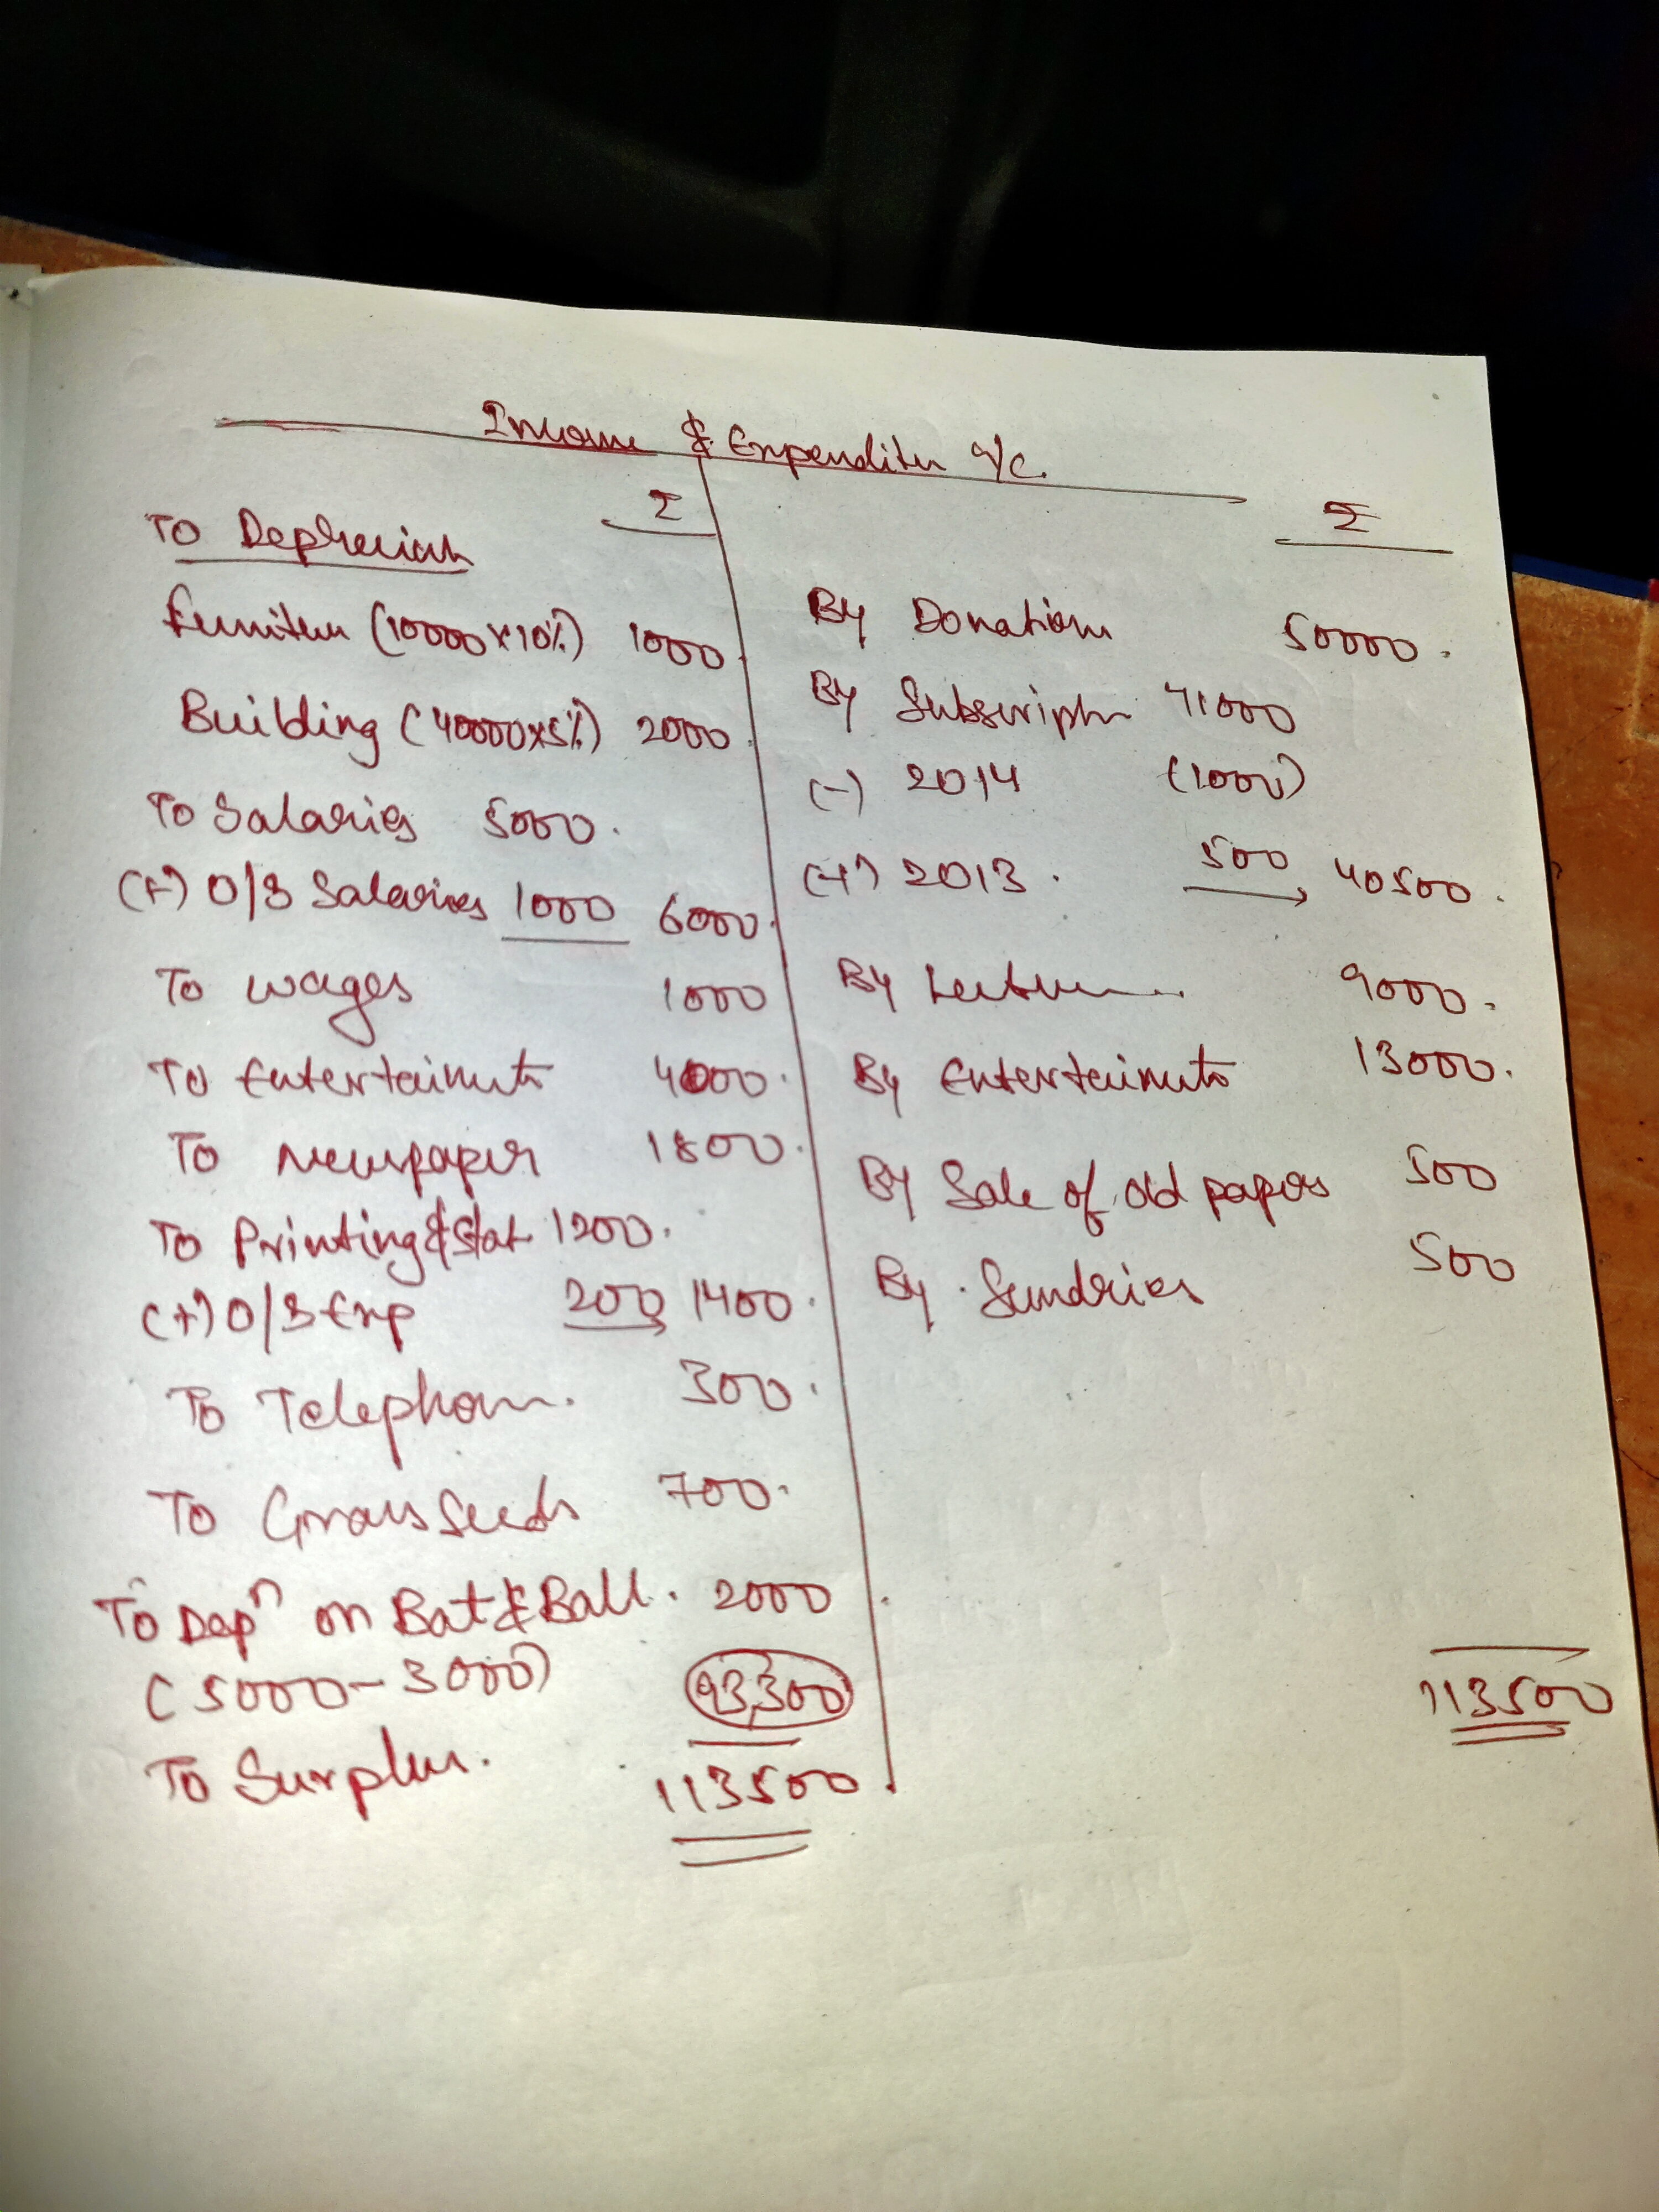 Income & Expenditu a/c.
₹
To Depreciation
Furniture (10000x10%) 1000
Building (40000x5%) 2000
To Salaries 5000.
(+) O/S Salaries 1000 6000.
To wages 1000
To Entertainmts 4000.
To Newspaper 1800.
To Printing & Stat. 1200.
(+) O/S Exp 200 1400.
To Telephone. 300.
To Grass Seeds 700.
To Depn on Bat & Ball. 2000
(5000-3000)
93,300
To Surplus.
113500
₹
By Donation 50000.
By Subscriptn 41000
(-) 2014 (1000)
(+) 2013. 500 40500.
By Lecture 9000.
By Entertainmts 13000.
By Sale of old papers 500
By Sundries 500
113500